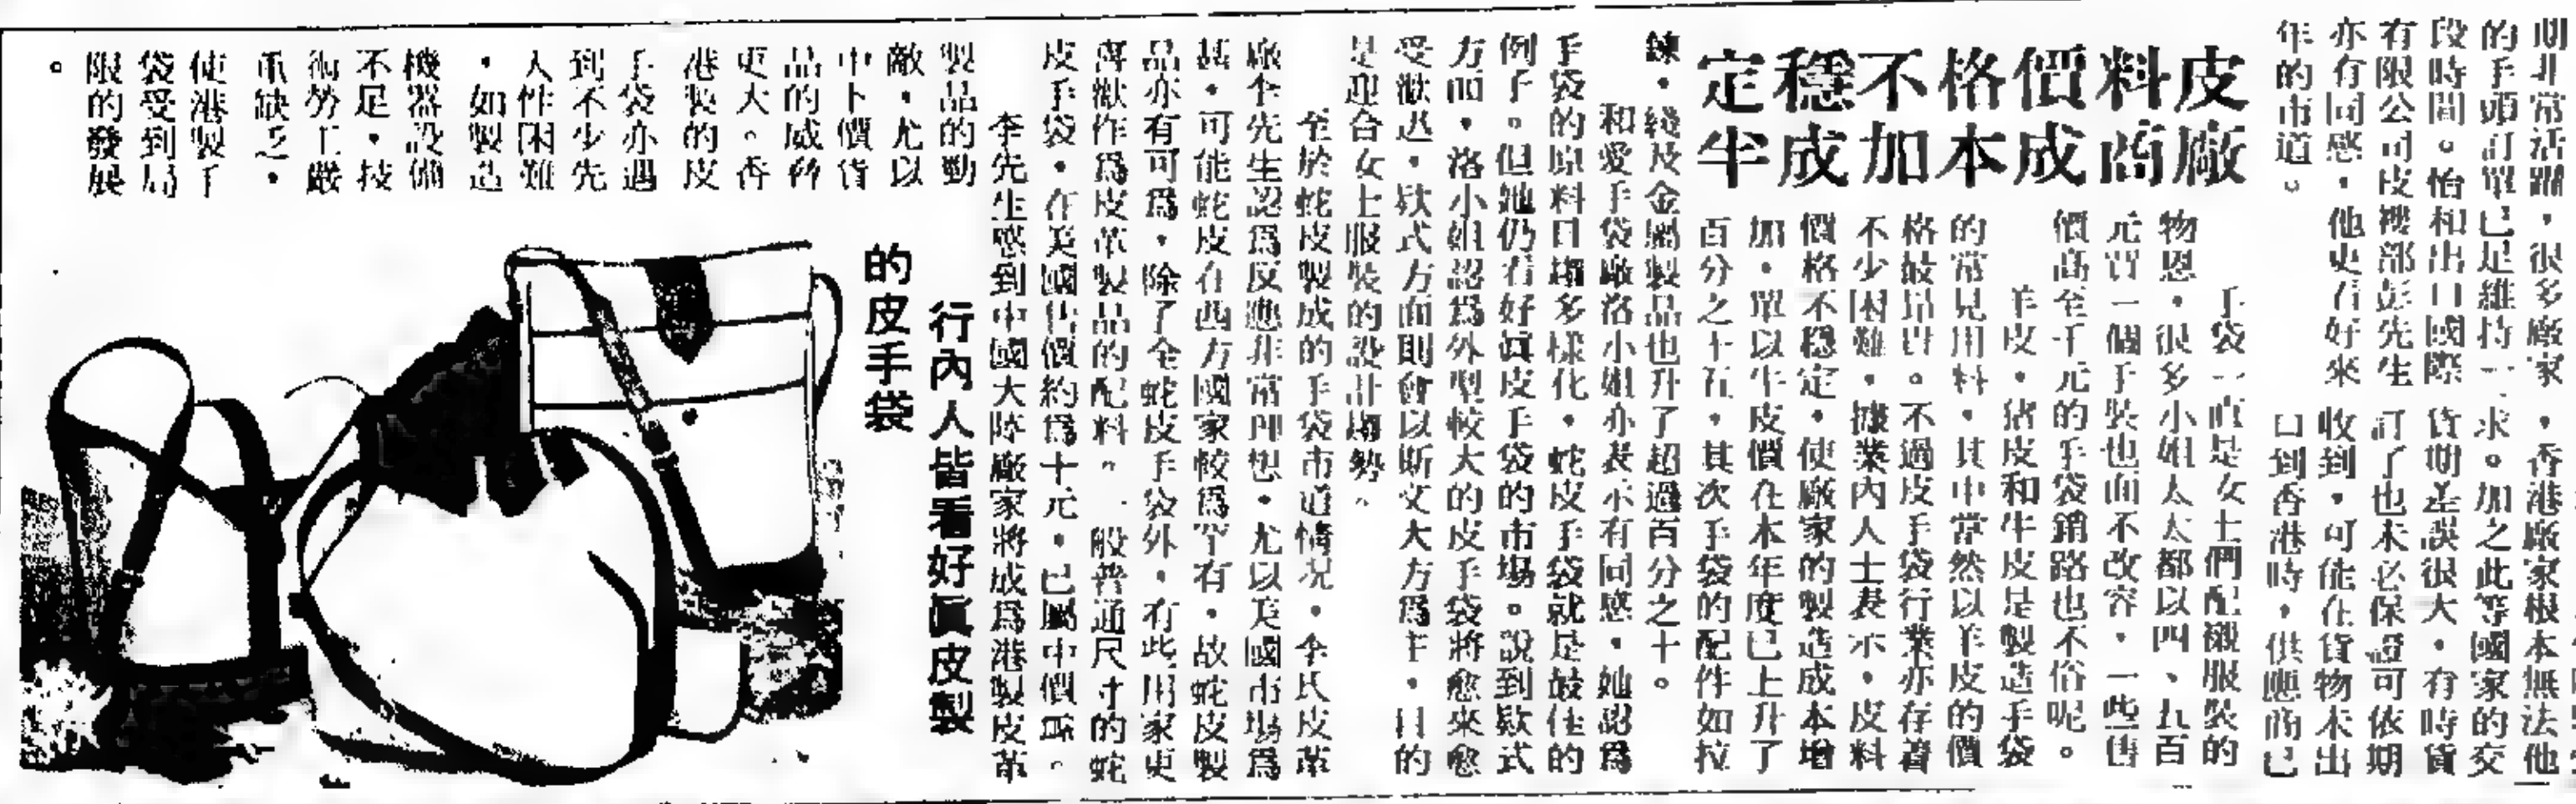 期非常活躍，很多廠家
的手頭訂單已足維持一
段時間。怡和出口國際
有限公司皮褸部彭先生
亦有同感，他更看好來
年的市道。
，香港廠家根本無法他
求。加之此等國家的交
貨期差誤很大，有時貨
訂了也未必保證可依期
收到，可能在貨物未出
口到香港時，供應商已
皮料價格不穩定
廠商成本加成半
手袋一直是女士們配襯服裝的
物恩，很多小姐太太都以四、五百
元買一個手裝也面不改容，一些售
價高至千元的手袋銷路也不俗呢。
羊皮，猪皮和牛皮是製造手袋
的常見用料，其中當然以羊皮的價
格最昂貴。不過皮手袋行業亦存着
不少困難，據業內人士表示，皮料
價格不穩定，使廠家的製造成本增
加，單以牛皮價在本年度已上升了
百分之十五，其次手袋的配件如拉
鍊，綫及金屬製品也升了超過百分之十。
和愛手袋廠洛小姐亦表示有同感，她認爲
手袋的原料日趨多樣化，蛇皮手袋就是最佳的
例子。但她仍看好眞皮手袋的市場。說到欵式
方面，洛小姐認爲外型較大的皮手袋將愈來愈
受歡迎，欵式方面則會以斯文大方爲主，目的
是迎合女士服裝的設計趨勢。
至於蛇皮製成的手袋市道情况，李氏皮革
廠李先生認爲反應非常理想，尤以美國市場爲
甚，可能蛇皮在西方國家較爲罕有，故蛇皮製
品亦有可爲，除了全蛇皮手袋外，有些用家更
喜歡作爲皮革製品的配料。一般普通尺寸的蛇
皮手袋，在美國售價約爲十元，已屬中價。
李先生感到中國大陸廠家將成爲港製皮革
製品的勁
敵，尤以
中下價貨
品的威脅
更大。香
港製的皮
手袋亦遇
到不少先
人件困難
，如製造
機器設備
不足，技
術勞工嚴
重缺乏，
使港製手
袋受到局
限的發展
。
行內人皆看好眞皮製
的皮手袋